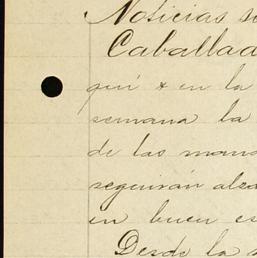 Noticias
Caballad
en la
semana la
de las
seguirán
en buen es
Desde la